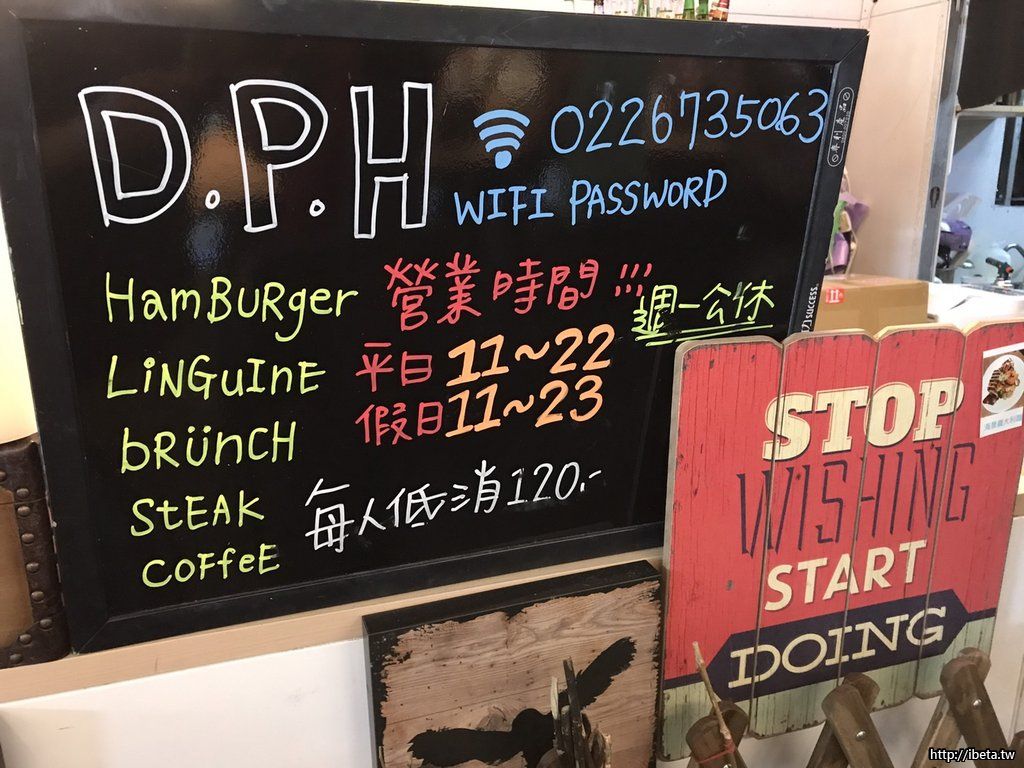 D.P.H
0226735063
WIFI PASSWORD
HamBURger
營業時間!!!
週一公休
LiNGuInE
平日11~22
bRünCH
假日11~23
StEAK
每人低消120.-
COFFeE
專利產品
SUCCESS.
STOP
WISHING
START
DOING
http://ibeta.tw